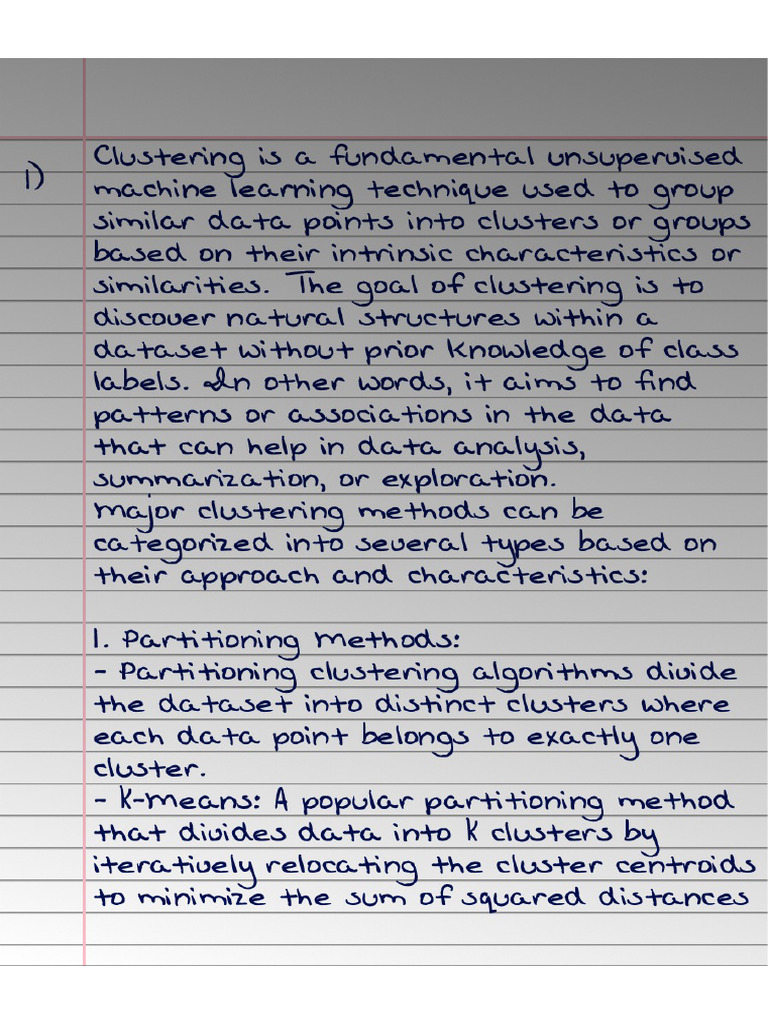 1)
Clustering is a fundamental unsupervised
machine learning technique used to group
similar data points into clusters or groups
based on their intrinsic characteristics or
similarities. The goal of clustering is to
discover natural structures within a
dataset without prior knowledge of class
labels. In other words, it aims to find
patterns or associations in the data
that can help in data analysis,
summarization, or exploration.
Major clustering methods can be
categorized into several types based on
their approach and characteristics:
1. Partitioning Methods:
- Partitioning clustering algorithms divide
the dataset into distinct clusters where
each data point belongs to exactly one
cluster.
- K-Means: A popular partitioning method
that divides data into K clusters by
iteratively relocating the cluster centroids
to minimize the sum of squared distances